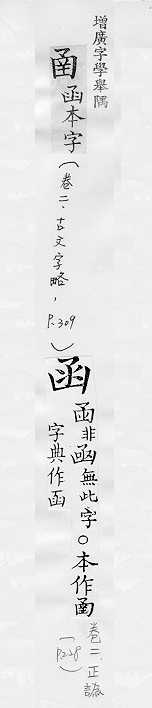 增廣字學舉隅
圅函本字(卷二.古文字略,P.309)
函
圅非凾無此字○本作圅
字典作函
(卷二.正譌
P.228)